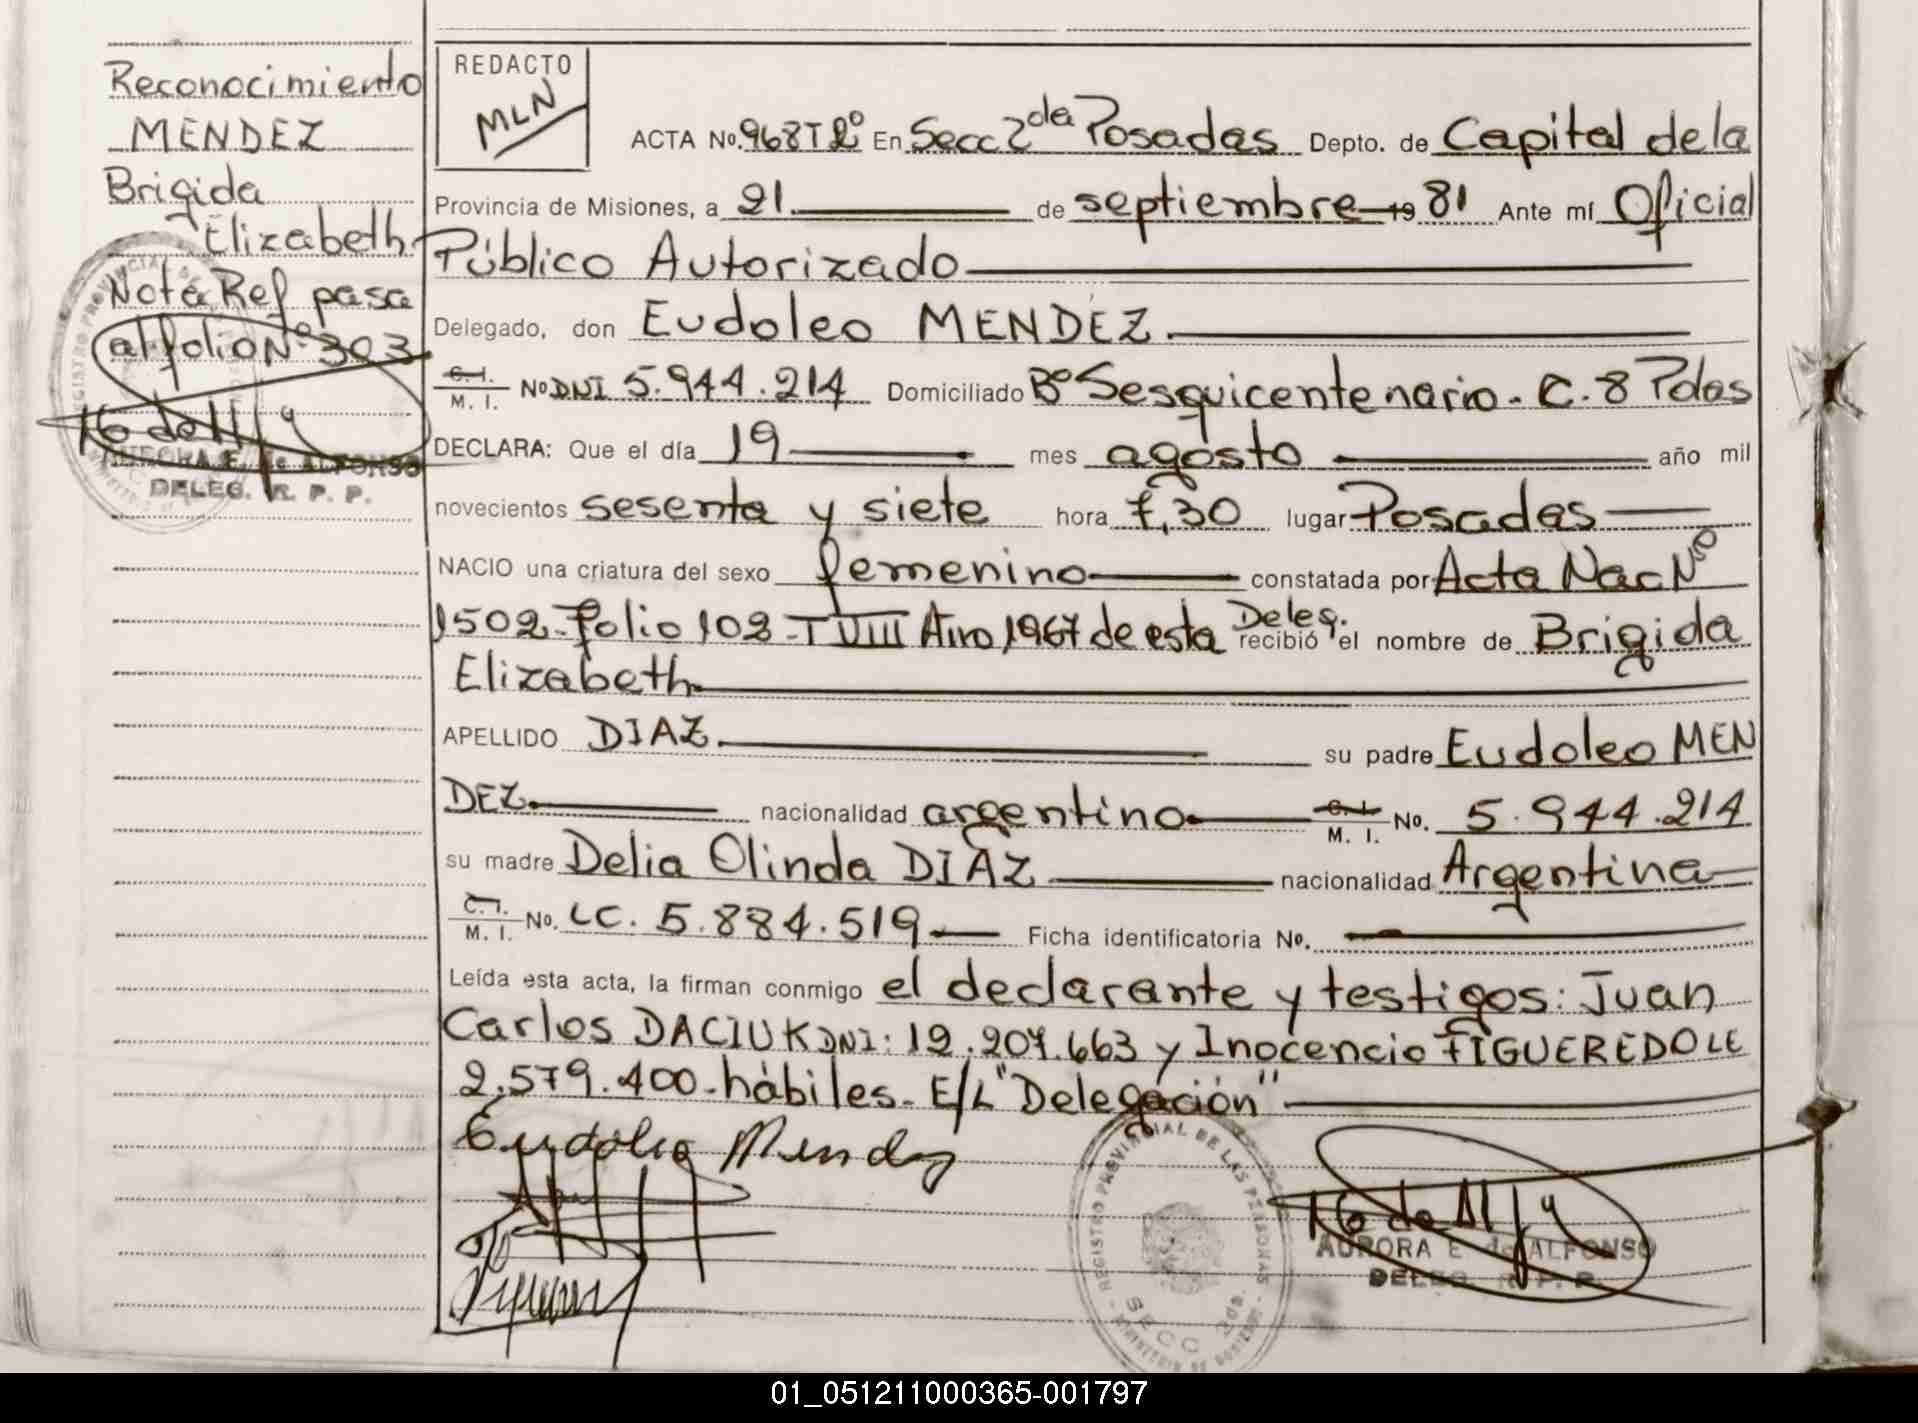 Reconocimiento
MENDEZ
Brigida
Elizabeth
Nota Ref pasa
al folio Nº 303
AURORA E. de ALFONSO
DELEG. R. P. P.
REDACTO
MLN
ACTA No. 968 T 2º En Secc 2da Posadas Depto. de Capital de la
Provincia de Misiones, a 21 de septiembre 19 81 Ante mí Oficial
Público Autorizado
Delegado, don Eudoleo MENDEZ
C. I. M. I. No DNI 5.944.214 Domiciliado Bº Sesquicentenario - C. 8 Pdas
DECLARA: Que el día 19 mes agosto año mil
novecientos sesenta y siete hora 7,30 lugar Posadas
NACIO una criatura del sexo femenino constatada por Acta Nac Nº
1502 - folio 102 - T VIII Año 1967 de esta Deleg. recibió el nombre de Brigida
Elizabeth
APELLIDO DIAZ su padre Eudoleo MEN
DEZ nacionalidad argentino C. I. M. I. No. 5.944.214
su madre Delia Olinda DIAZ nacionalidad Argentina
C. I. M. I. No. LC. 5.884.519 Ficha identificatoria No.
Leída esta acta, la firman conmigo el declarante y testigos: Juan
Carlos DACIUK DNI: 12.207.663 y Inocencio FIGUEREDO LE
2.579.400 - hábiles - E/L "Delegación"
Mendez
REGISTRO PROVINCIAL DE LAS PERSONAS
SECC 2da.
AURORA E. de ALFONSO
DELEG. R. P. P.
01_051211000365-001797